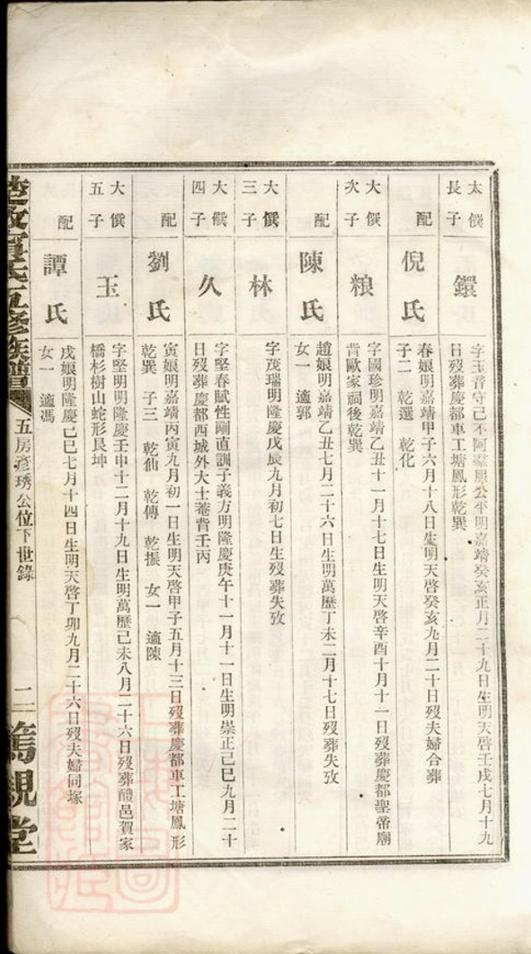 太僎長子
鐶
字玉音守己不阿羣羨公平明嘉靖癸亥正月二十九日生明天啓壬戌七月十九
日歿葬慶都車工塘鳳形乾巽
配
倪氏
春娘明嘉靖甲子六月十八日生明天啓癸亥九月二十日歿夫婦合葬
子二 乾選 乾化
大僎次子
粮
字國珍明嘉靖乙丑十一月十七日生明天啓辛酉十月十一日歿葬慶都聖帝廟
背歐家祠後乾巽
配
陳氏
趙娘明嘉靖乙丑七月二十六日生明萬歷丁未二月十七日歿葬失攷
女一 適郭
大僎三子
林
字茂瑞明隆慶戊辰九月初七日生歿葬失攷
大僎四子
久
字堅春賦性剛直訓子義方明隆慶庚午十一月十一日生明崇正己巳九月二十
日歿葬慶都西城外大士菴背壬丙
配
劉氏
寅娘明嘉靖丙寅九月初一日生明天啓甲子五月十三日歿葬慶都車工塘鳳形
乾巽 子三 乾仙 乾傳 乾振 女一 適陳
大僎五子
玉
字堅明明隆慶壬申十二月十九日生明萬歷己未八月二十六日歿葬醴邑賀家
橋杉樹山蛇形艮坤
配
譚氏
戊娘明隆慶己巳七月十四日生明天啓丁卯九月二十六日歿夫婦同塚
女一 適馮
氏五修族譜
五房彥琇公位下世錄
二
篤親堂